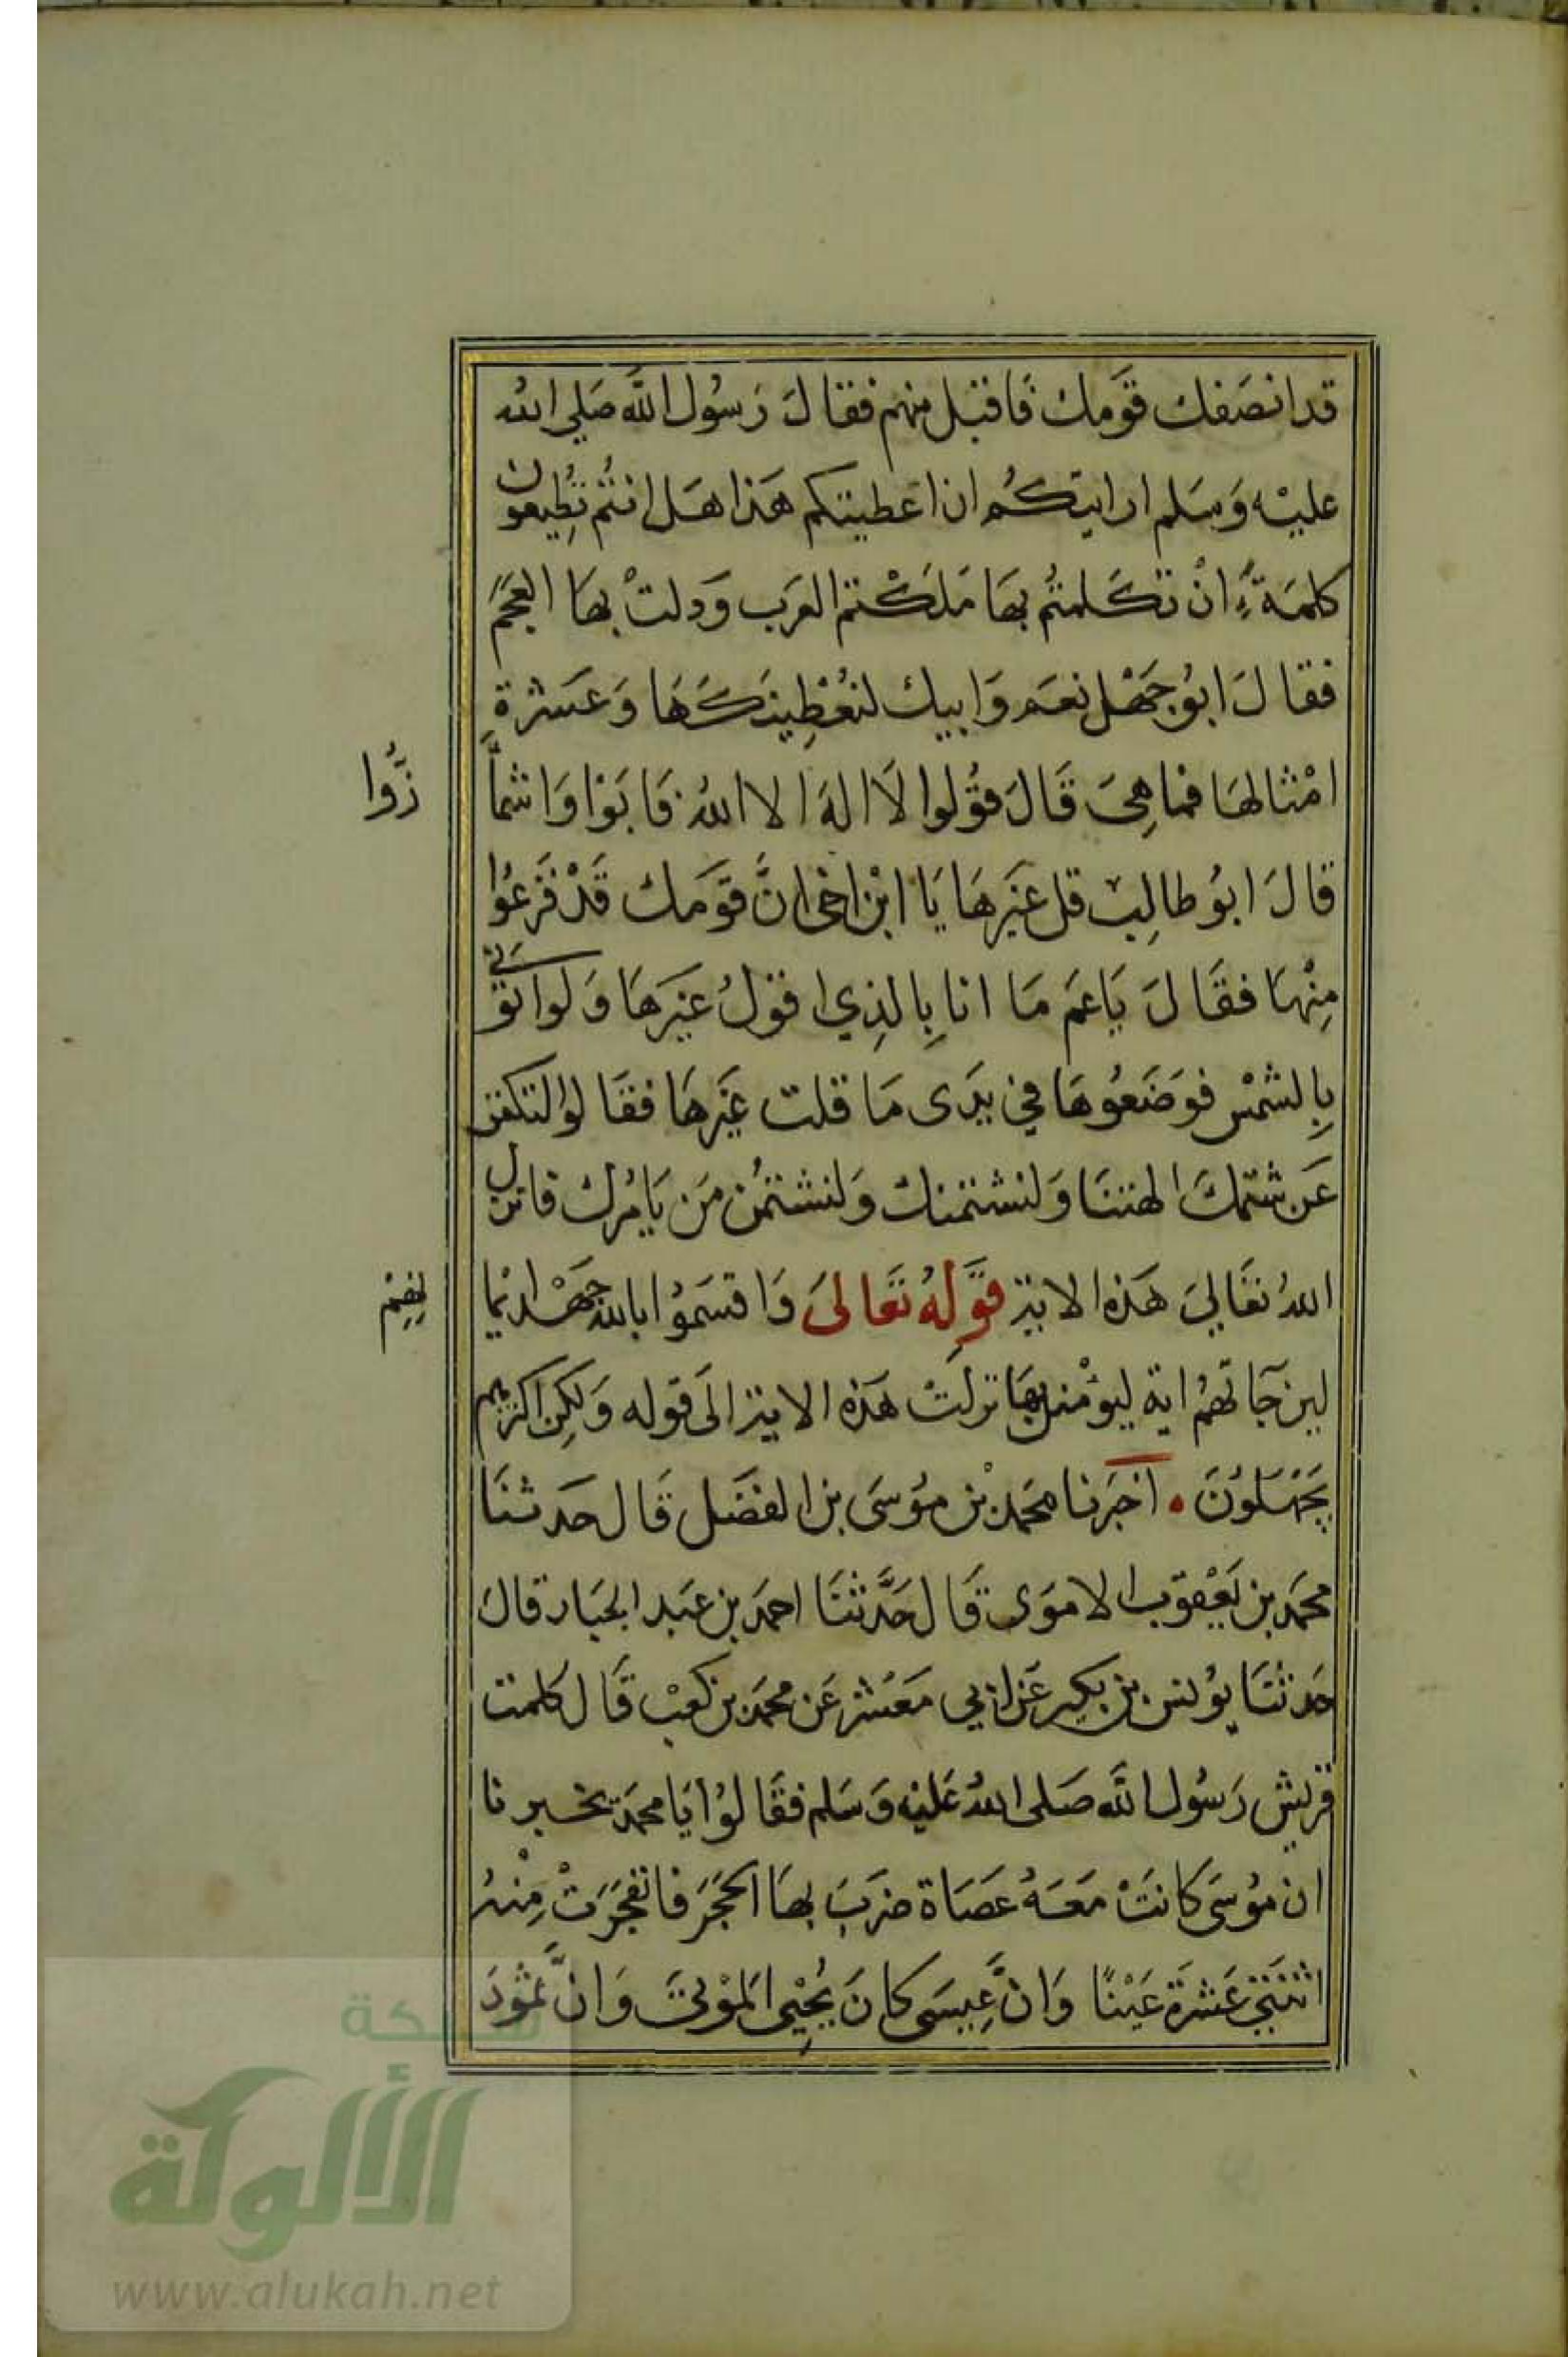 قد انصَفك قَومك فَاقبَل منهم فقال رَسُول اللَّه صَلي الله
عليْه وَسَلم ارايتكُم ان اعَطيتكم هَذا هَل انتُم تُطِيعُون
كلمَة اِنْ تكَلمتُم بهَا مَلَكْتم العَرب وَدلتْ بهَا العَجَم
فقالَ ابُو جَهْل نعَم وَابيك لنُعْطِينكَهَا وَعَشرَة
امْثالهَا فما هِيَ قَالَ قُولُوا لَا الهَ الا اللهُ فَابَوْا وَاشما
زُّوا
قالَ ابُو طالِب قل غَيرهَا يَا ابْن اخى انَّ قَومَك قَدْ فَزعُوا
مِنْهَا فقَالَ يَاعَم مَا انا بِالذِي اقولُ غيَرهَا وَلو اتوني
بِالشمْس فوَضَعُوهَا في يَدى مَا قلت غَيرهَا فقَالوا لتكفن
عَن شتمكَ الهتنَا وَلنشتمنك وَلنشتمُن مَن يَامُرك فانزل
اللهُ تعَالي هَذه الاية قَولهُ تعَالىَ وَاقسَمُوا بالله جَهْد ايْما
نِهِمْ
لين جَاتهُم اية ليوْمنن بهَا نزلَتْ هَذه الاية الَى قوله وَلكِن اكثرهم
يَجْهَلُونَ . اخبَرنا محمَد بْن مُوسَى بن الفضَل قَال حَدثنَا
محمَد بن يَعْقوب الامَوى قَال حَدَّثنَا احمَد بن عَبد الجَبار قالَ
حَدثنَا يُونس بن بكير عَن ابي مَعْشر عَن محمَد بن كَعبْ قَال كلمت
قريش رَسُول اللَّه صَلى اللهُ عَليْه وَسَلم فقَالوُا يَا محمَد تخبرنا
ان مُوسَى كانتْ مَعَهُ عَصَاة ضرَبَ بهَا الحَجَرَ فانفجَرَتْ مِنْهُ
اثنتيَ عَشرَة عَيْنًا وَانَّ عِيسَى كانَ يُحْيِي المَوْتىَ وَانَّ ثمُودَ
شبكة
الألوكة
www.alukah.net